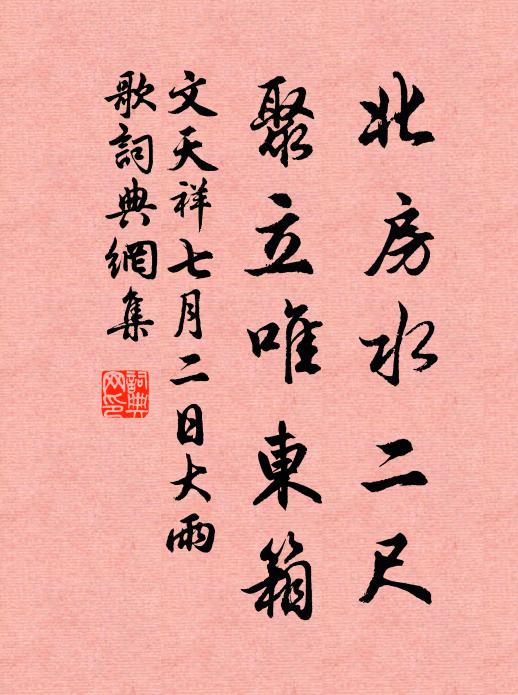 北房水二尺
聚立唯東箱
文天祥七月二日大雨
歌詞典網集
詞典網印